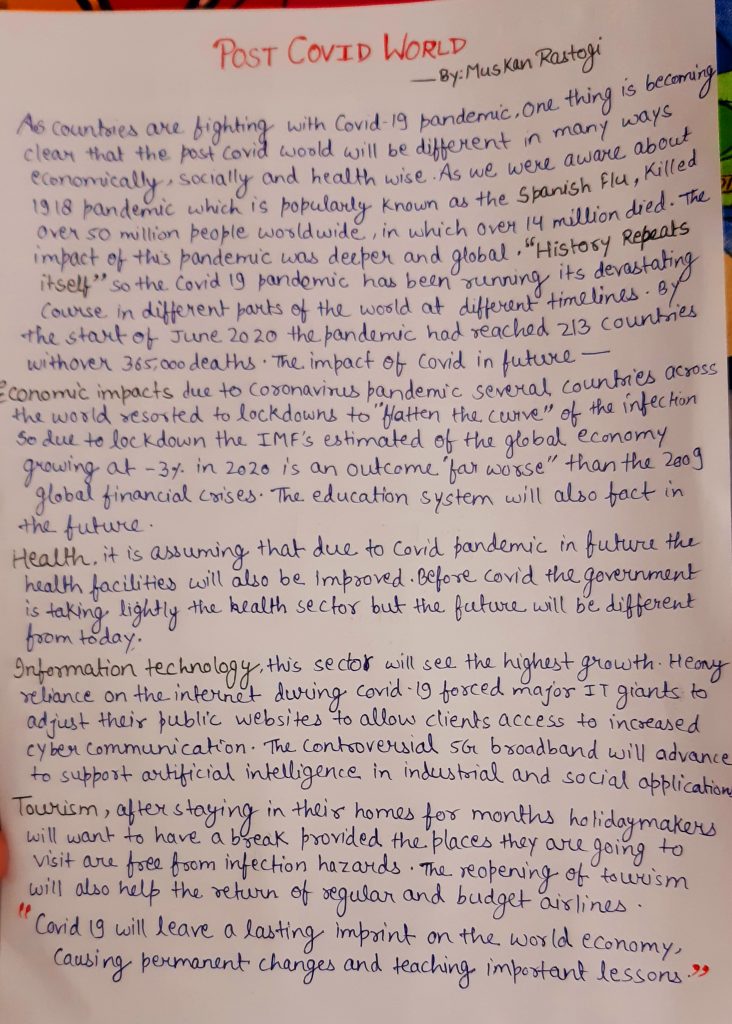 POST COVID WORLD
— By: Muskan Rastogi
As countries are fighting with Covid-19 pandemic, one thing is becoming
clear that the post Covid world will be different in many ways
economically, socially and health wise. As we were aware about
1918 pandemic which is popularly known as the Spanish flu, killed
over 50 million people worldwide, in which over 14 million died. The
impact of this pandemic was deeper and global. "History Repeats
itself" so the Covid 19 pandemic has been running its devastating
course in different parts of the world at different timelines. By
the start of June 2020 the pandemic had reached 213 countries
with over 365,000 deaths. The impact of Covid in future —
Economic impacts due to coronavirus pandemic several countries across
the world resorted to lockdowns to "flatten the curve" of the infection
so due to lockdown the IMF's estimated of the global economy
growing at -3% in 2020 is an outcome "far worse" than the 2009
global financial crises. The education system will also fact in
the future.
Health, it is assuming that due to Covid pandemic in future the
health facilities will also be Improved. Before covid the government
is taking lightly the health sector but the future will be different
from today.
Information technology, this sector will see the highest growth. Heavy
reliance on the internet during covid-19 forced major IT giants to
adjust their public websites to allow clients access to increased
cyber communication. The controversial 5G broadband will advance
to support artificial intelligence in industrial and social application
Tourism, after staying in their homes for months holidaymakers
will want to have a break provided the places they are going to
visit are free from infection hazards. The reopening of tourism
will also help the return of regular and budget airlines.
"Covid 19 will leave a lasting imprint on the world economy,
causing permanent changes and teaching important lessons."